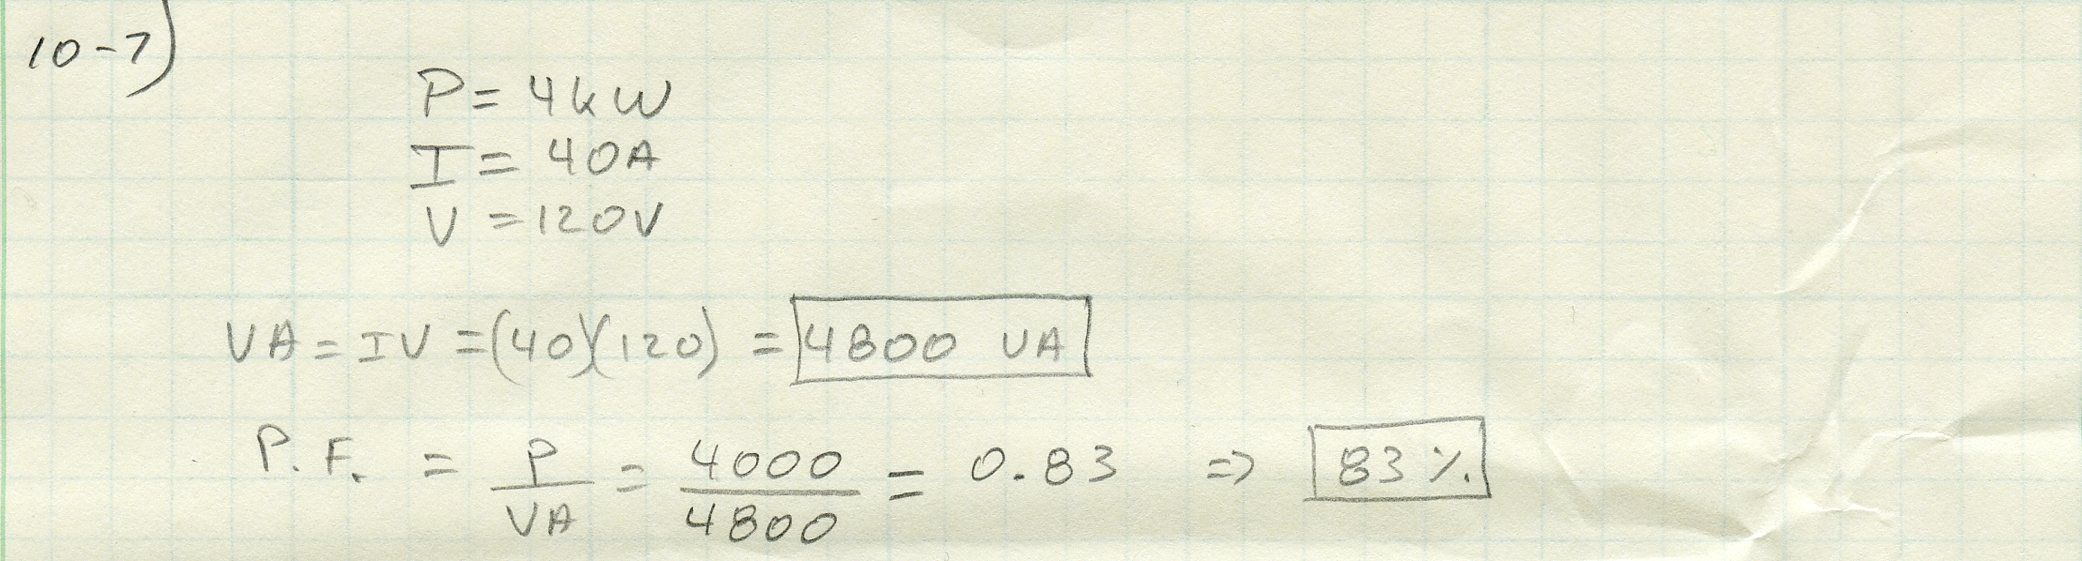 10-7)
P = 4kW
I = 40A
V = 120V
VA = IV = (40)(120) = 4800 VA
P.F. = P/VA = 4000/4800 = 0.83 => 83%